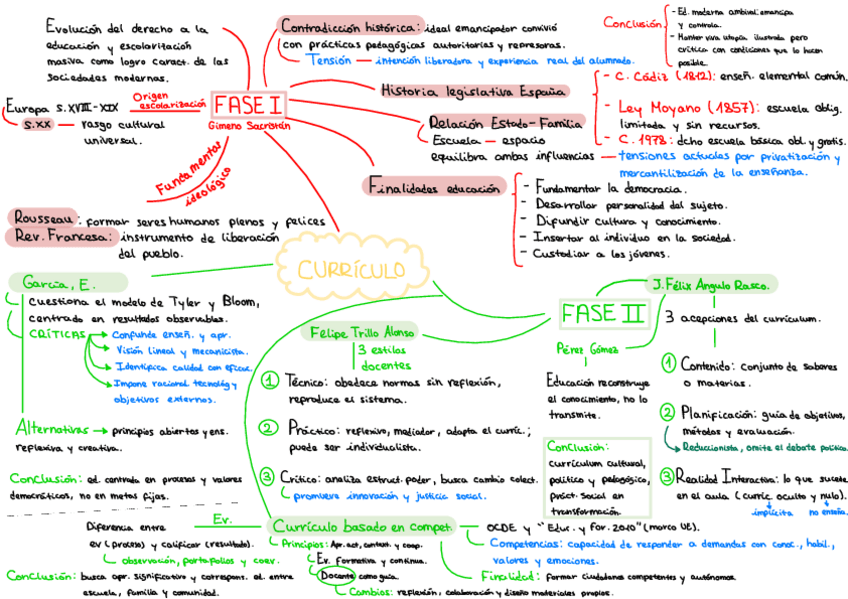 Evolución del derecho a la
educación y escolaritación
masiva como logro caract. de las
sociedades modernas.
Contradicción histórica: ideal emancipador convivió
con prácticas pedagógicas autoritarias y represoras.
Tensión — intención liberadora y experiencia real del alumnado.
Conclusión
- Ed. moderna ambival: emancipa
y controla.
- Mantener viva utopía ilustrada pero
crítica con condiciones que lo hacen
posible.
Europa s.XVIII-XIX
Origen
escolarización
s.xx — rasgo cultural
universal.
FASE I
Gimeno Sacristán
Historia legislativa España
- C. Cádiz (1812): enseñ. elemental común.
- Ley Moyano (1857): escuela oblig.
limitada y sin recursos.
- C. 1978: dcho escuela básica obl. y gratis.
Relación Estado-Familia
Escuela — espacio
equilibra ambas influencias — tensiones actuales por privatización y
mercantilización de la enseñanza.
Finalidades educación
- Fundamentar la democracia.
- Desarrollar personalidad del sujeto.
- Difundir cultura y conocimiento.
- Insertar al individuo en la sociedad.
- Custodiar a los jóvenes.
Fundamentos
ideológico
Rousseau: formar seres humanos plenos y felices
Rev. Francesa: instrumento de liberación
del pueblo.
CURRÍCULO
García, E.
cuestiona el modelo de Tyler y Bloom,
centrado en resultados observables.
CRÍTICAS
Confunde enseñ. y apr.
Visión lineal y mecanicista.
Identifica calidad con eficac.
Impone racional tecnológ y
objetivos externos.
Alternativas → principios abiertos y ens.
reflexiva y creativa.
Conclusión: ed. centrada en procesos y valores
democráticos, no en metas fijas.
Felipe Trillo Alonso
3 estilos
docentes
1 Técnico: obedece normas sin reflexión,
reproduce el sistema.
2 Práctico: reflexivo, mediador, adapta el curríc.;
puede ser individualista.
3 Crítico: analiza estruct. poder, busca cambio colect.
promueve innovación y justicia social.
FASE II
Pérez Gómez
Educación reconstruye
el conocimiento, no lo
transmite.
Conclusión:
currículum cultural,
político y pedagógico,
práct. social en
transformación.
J. Félix Angulo Rasco.
3 acepciones del currículum.
1 Contenido: conjunto de saberes
o materias.
2 Planificación: guía de objetivos,
métodos y evaluación.
Reduccionista, omite el debate político.
3 Realidad Interactiva: lo que sucede
en el aula (curríc. oculto y nulo).
implícita no enseña.
Diferencia entre
ev (proceso) y calificar (resultado).
observación, portafolios y coev.
Ev.
Conclusión: busca apr. significativo y correspons. ed. entre
escuela, familia y comunidad.
Currículo basado en compet.
Principios: Apr. act, context. y coop.
Ev. formativa y continua.
Docente como guía.
Cambios: reflexión, colaboración y diseño materiales propios.
OCDE y "Educ. y For. 2010" (marco UE).
Competencias: capacidad de responder a demandas con conoc., habil.,
valores y emociones.
Finalidad: formar ciudadanos competentes y autónomos.